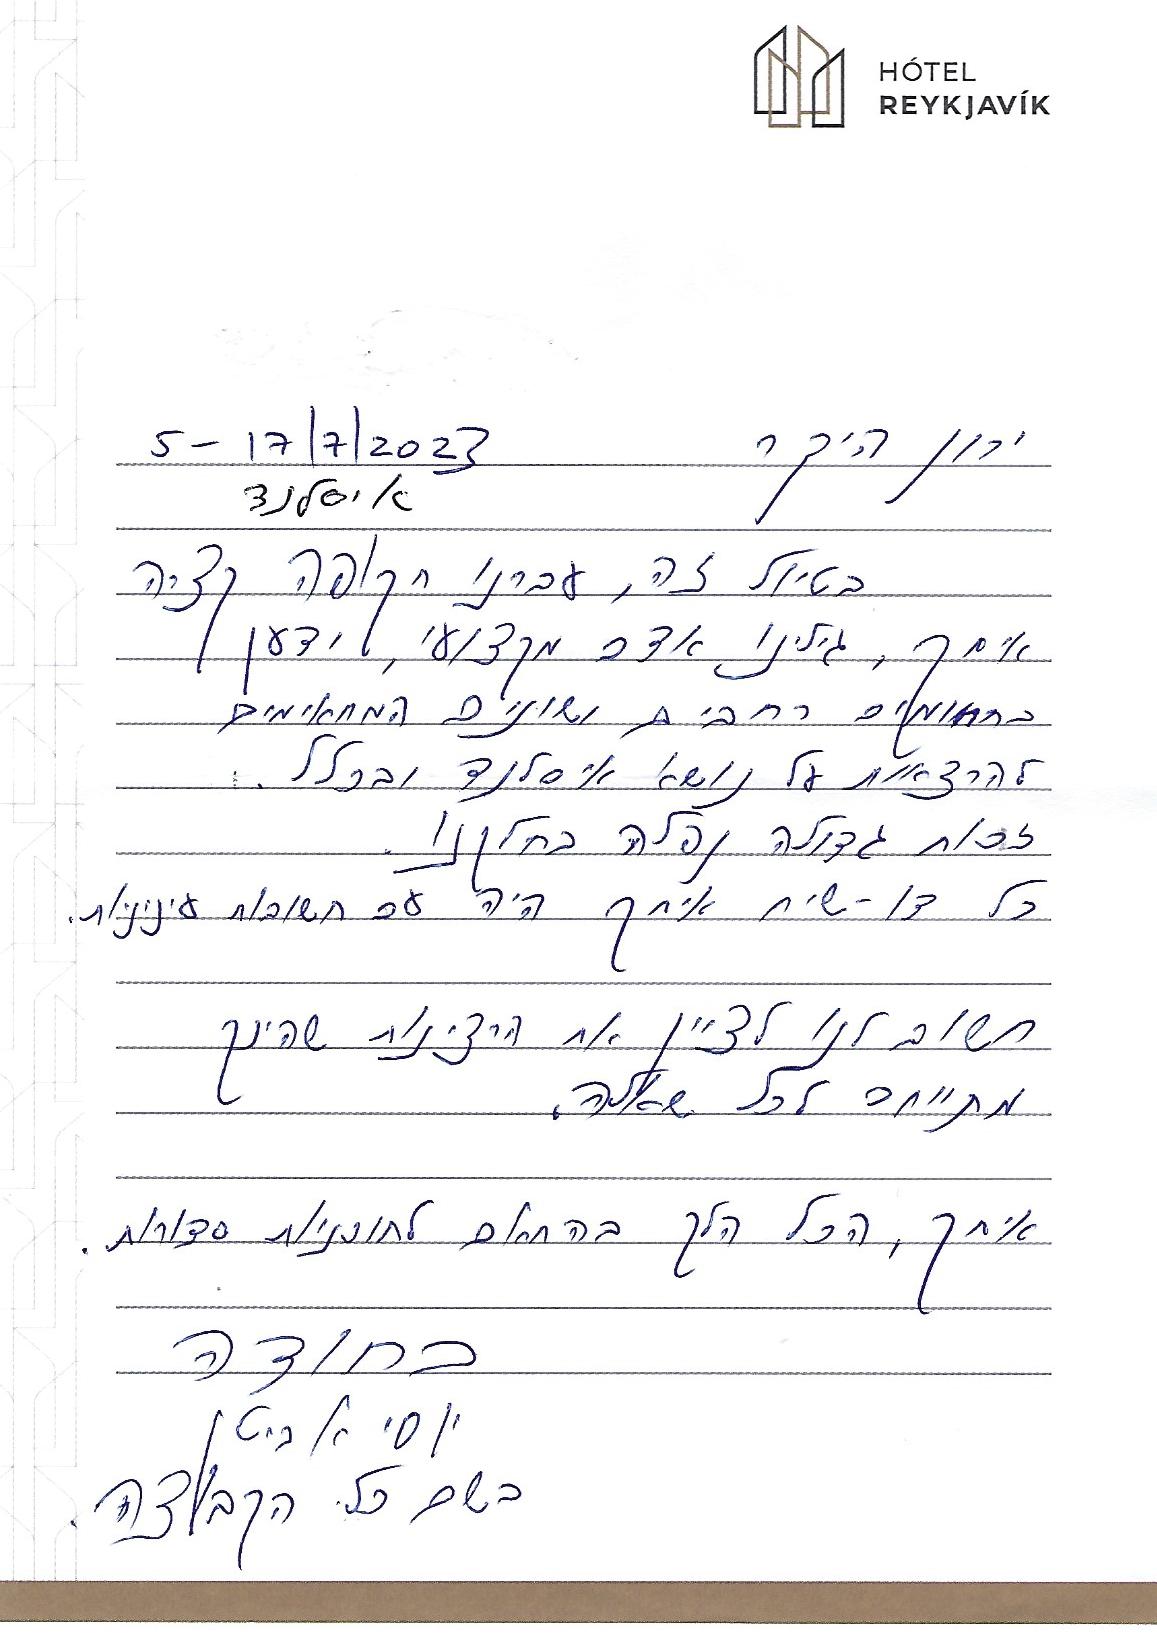 HÓTEL
REYKJAVÍK
ירון היקר 5-17/7/2023
איסלנד
בטיול זה, עברנו תקופה קצרה
איתך, גילינו אדם מקצועי, ידען
בתחומים רחבים ושונים המתאימים
להרצאות על נושא איסלנד ובכלל.
זכות גדולה נפלה בחלקנו.
כל דו-שיח איתך היה עם תשובות עיניניות.
חשוב לנו לציין את הרצינות שהינך
מתייחס לכל שאלה.
איתך, הכל הלך בהתאם לתוכניות סדורות.
בתודה
יוסי אביטן
בשם כל הקבוצה.